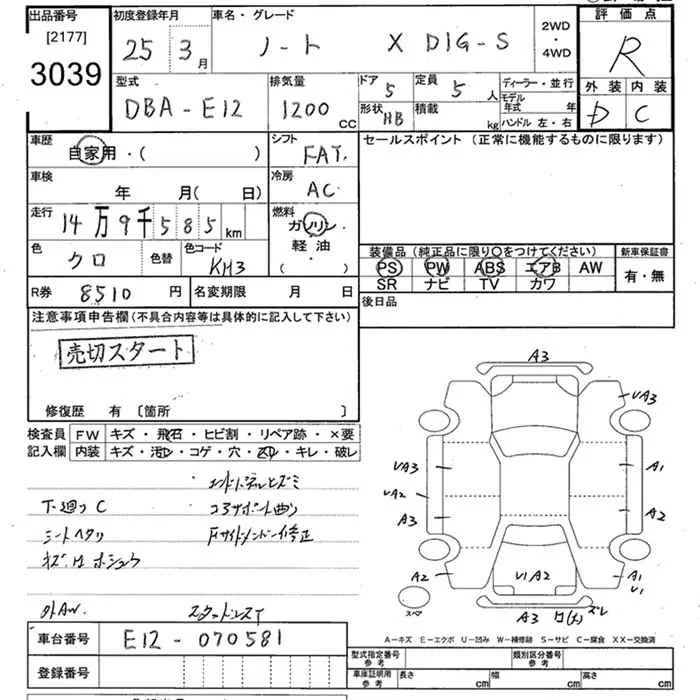 出品番号
[2177]
3039
初度登録年月
25年3月
車名・グレード
ノート X DIG-S
2WD
・
4WD
評価点
R
外装 内装
D C
型式
DBA-E12
排気量
1200 cc
ドア
5
定員
5人
形状
HB
積載
kg
ディーラー・並行
モデル年式 年
ハンドル 左・右
車歴
自家用・( )
シフト
FAT.
セールスポイント (正常に機能するものに限ります)
車検
年 月(日)
冷房
AC
走行
14万9千585 km
燃料
ガソリン
軽油
( )
色
クロ
色替
色コード
KH3
装備品 (純正品に限り○をつけてください)
PS PW ABS エアB AW
SR ナビ TV カワ
新車保証書
有・無
R券 8510円
名変期限 月 日
後日品
注意事項申告欄 (不具合内容等は具体的に記入して下さい)
売切スタート
修復歴 有 [箇所 ]
検査員記入欄
FW キズ・飛石・ヒビ割・リペア跡・×要
内装 キズ・汚レ・コゲ・穴・スレ・キレ・破レ
下廻り C
コアサポート曲り
シートヘタリ
外AW.
A3
VA3
VA3
A1
VA2
A2
A3
A2
V1 A2
A1
V1
スペア
A3
ズレ
A−キズ E−エクボ U−凹み W−補修跡 S−サビ C−腐食 XX−交換済
車台番号 E12-070581
登録番号
型式指定番号
参考
類別区分番号
参考
車庫証明用
参考
長さ cm
幅 cm
高さ cm